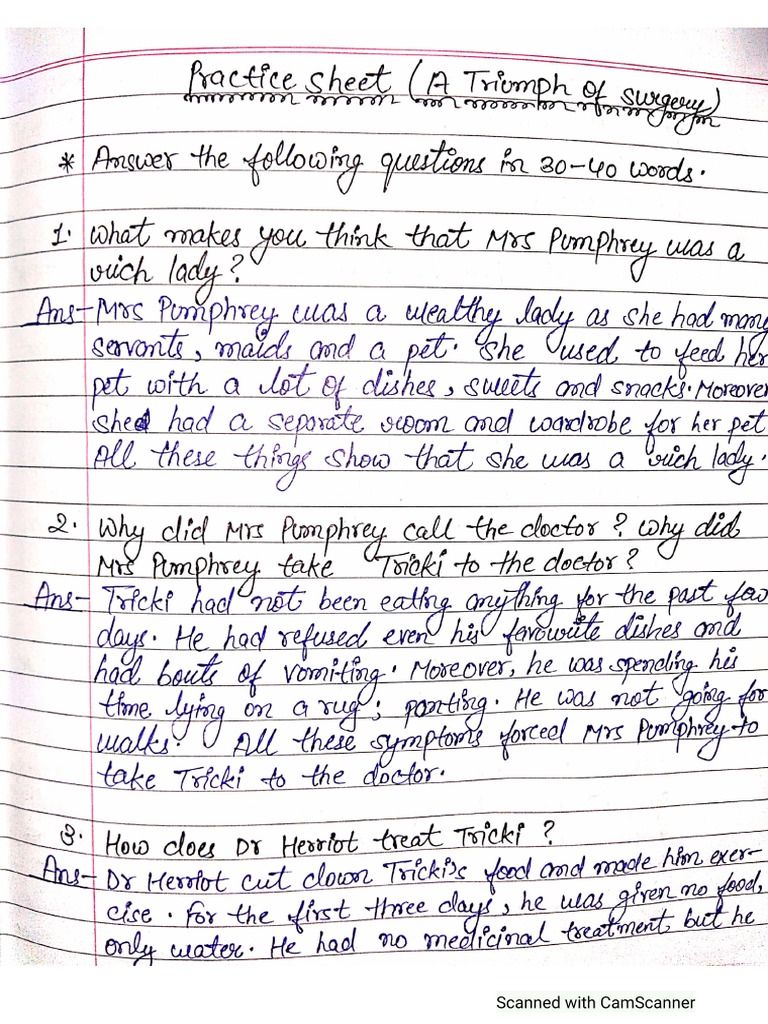 Practice Sheet (A Triumph of Surgery)
* Answer the following questions in 30-40 words.
1. What makes you think that Mrs Pumphrey was a
rich lady?
Ans- Mrs Pumphrey was a wealthy lady as she had many
servants, maids and a pet. She used to feed her
pet with a lot of dishes, sweets and snacks. Moreover
she had a separate room and wardrobe for her pet
All these things show that she was a rich lady.
2. Why did Mrs Pumphrey call the doctor? Why did
Mrs Pumphrey take Tricki to the doctor?
Ans- Tricki had not been eating anything for the past few
days. He had refused even his favourite dishes and
had bouts of vomiting. Moreover, he was spending his
time lying on a rug; panting. He was not going for
walks. All these symptoms forced Mrs Pumphrey to
take Tricki to the doctor.
3. How does Dr Herriot treat Tricki?
Ans- Dr Herriot cut down Tricki's food and made him exer-
cise. For the first three days, he was given no food,
only water. He had no medicinal treatment, but he
Scanned with CamScanner